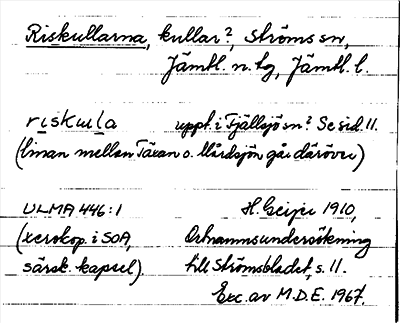 Riskullarna, kullar?, Ströms sn,
Jämtl. n. tg, Jämtl. l.
riskula uppt. i Fjällsjö sn? Se sid. 11.
(linan mellan Täxan o. Mårdsjön går däröver)
ULMA 446:1 H. Geijer 1910,
(xerokop. i SOA, Ortnamnsundersökning
särsk. kapsel). till Strömsbladet, s. 11.
Exc. av M.D.E. 1967.